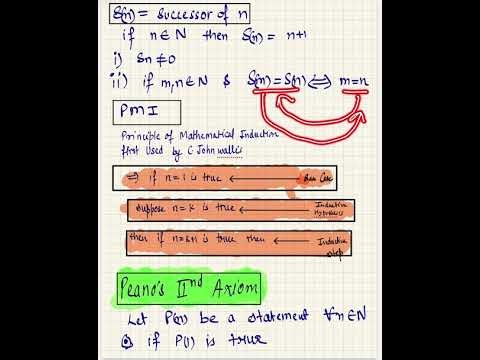 S(n) = Successor of n
if n∈N then S(n) = n+1
i) Sn ≠ 0
ii) if m,n∈N & S(m) = S(n) ⟺ m=n
PMI
Principle of Mathematical Induction
first Used by ( John wallis
⇒ if n=1 is true ⟵ Base Case
suppose n=k is true ⟵ Inductive Hypothesis
then if n=k+1 is true then ⟵ Inductive step
Peano's IInd Axiom
Let P(n) be a statement ∀n∈N
if P(1) is true